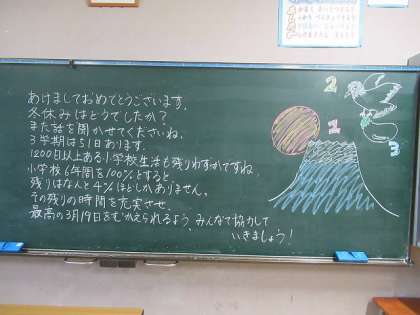 あけましておめでとうございます。
冬休みはどうでしたか？
また話を聞かせてくださいね。
3学期は51日あります。
1200日以上ある小学校生活も残りわずかですね。
小学校6年間を100%とすると、
残りはなんと4%ほどしかありません。
その残りの時間を充実させ、
最高の3月19日をむかえられるよう、みんなで協力して
いきましょう！
2
1
3